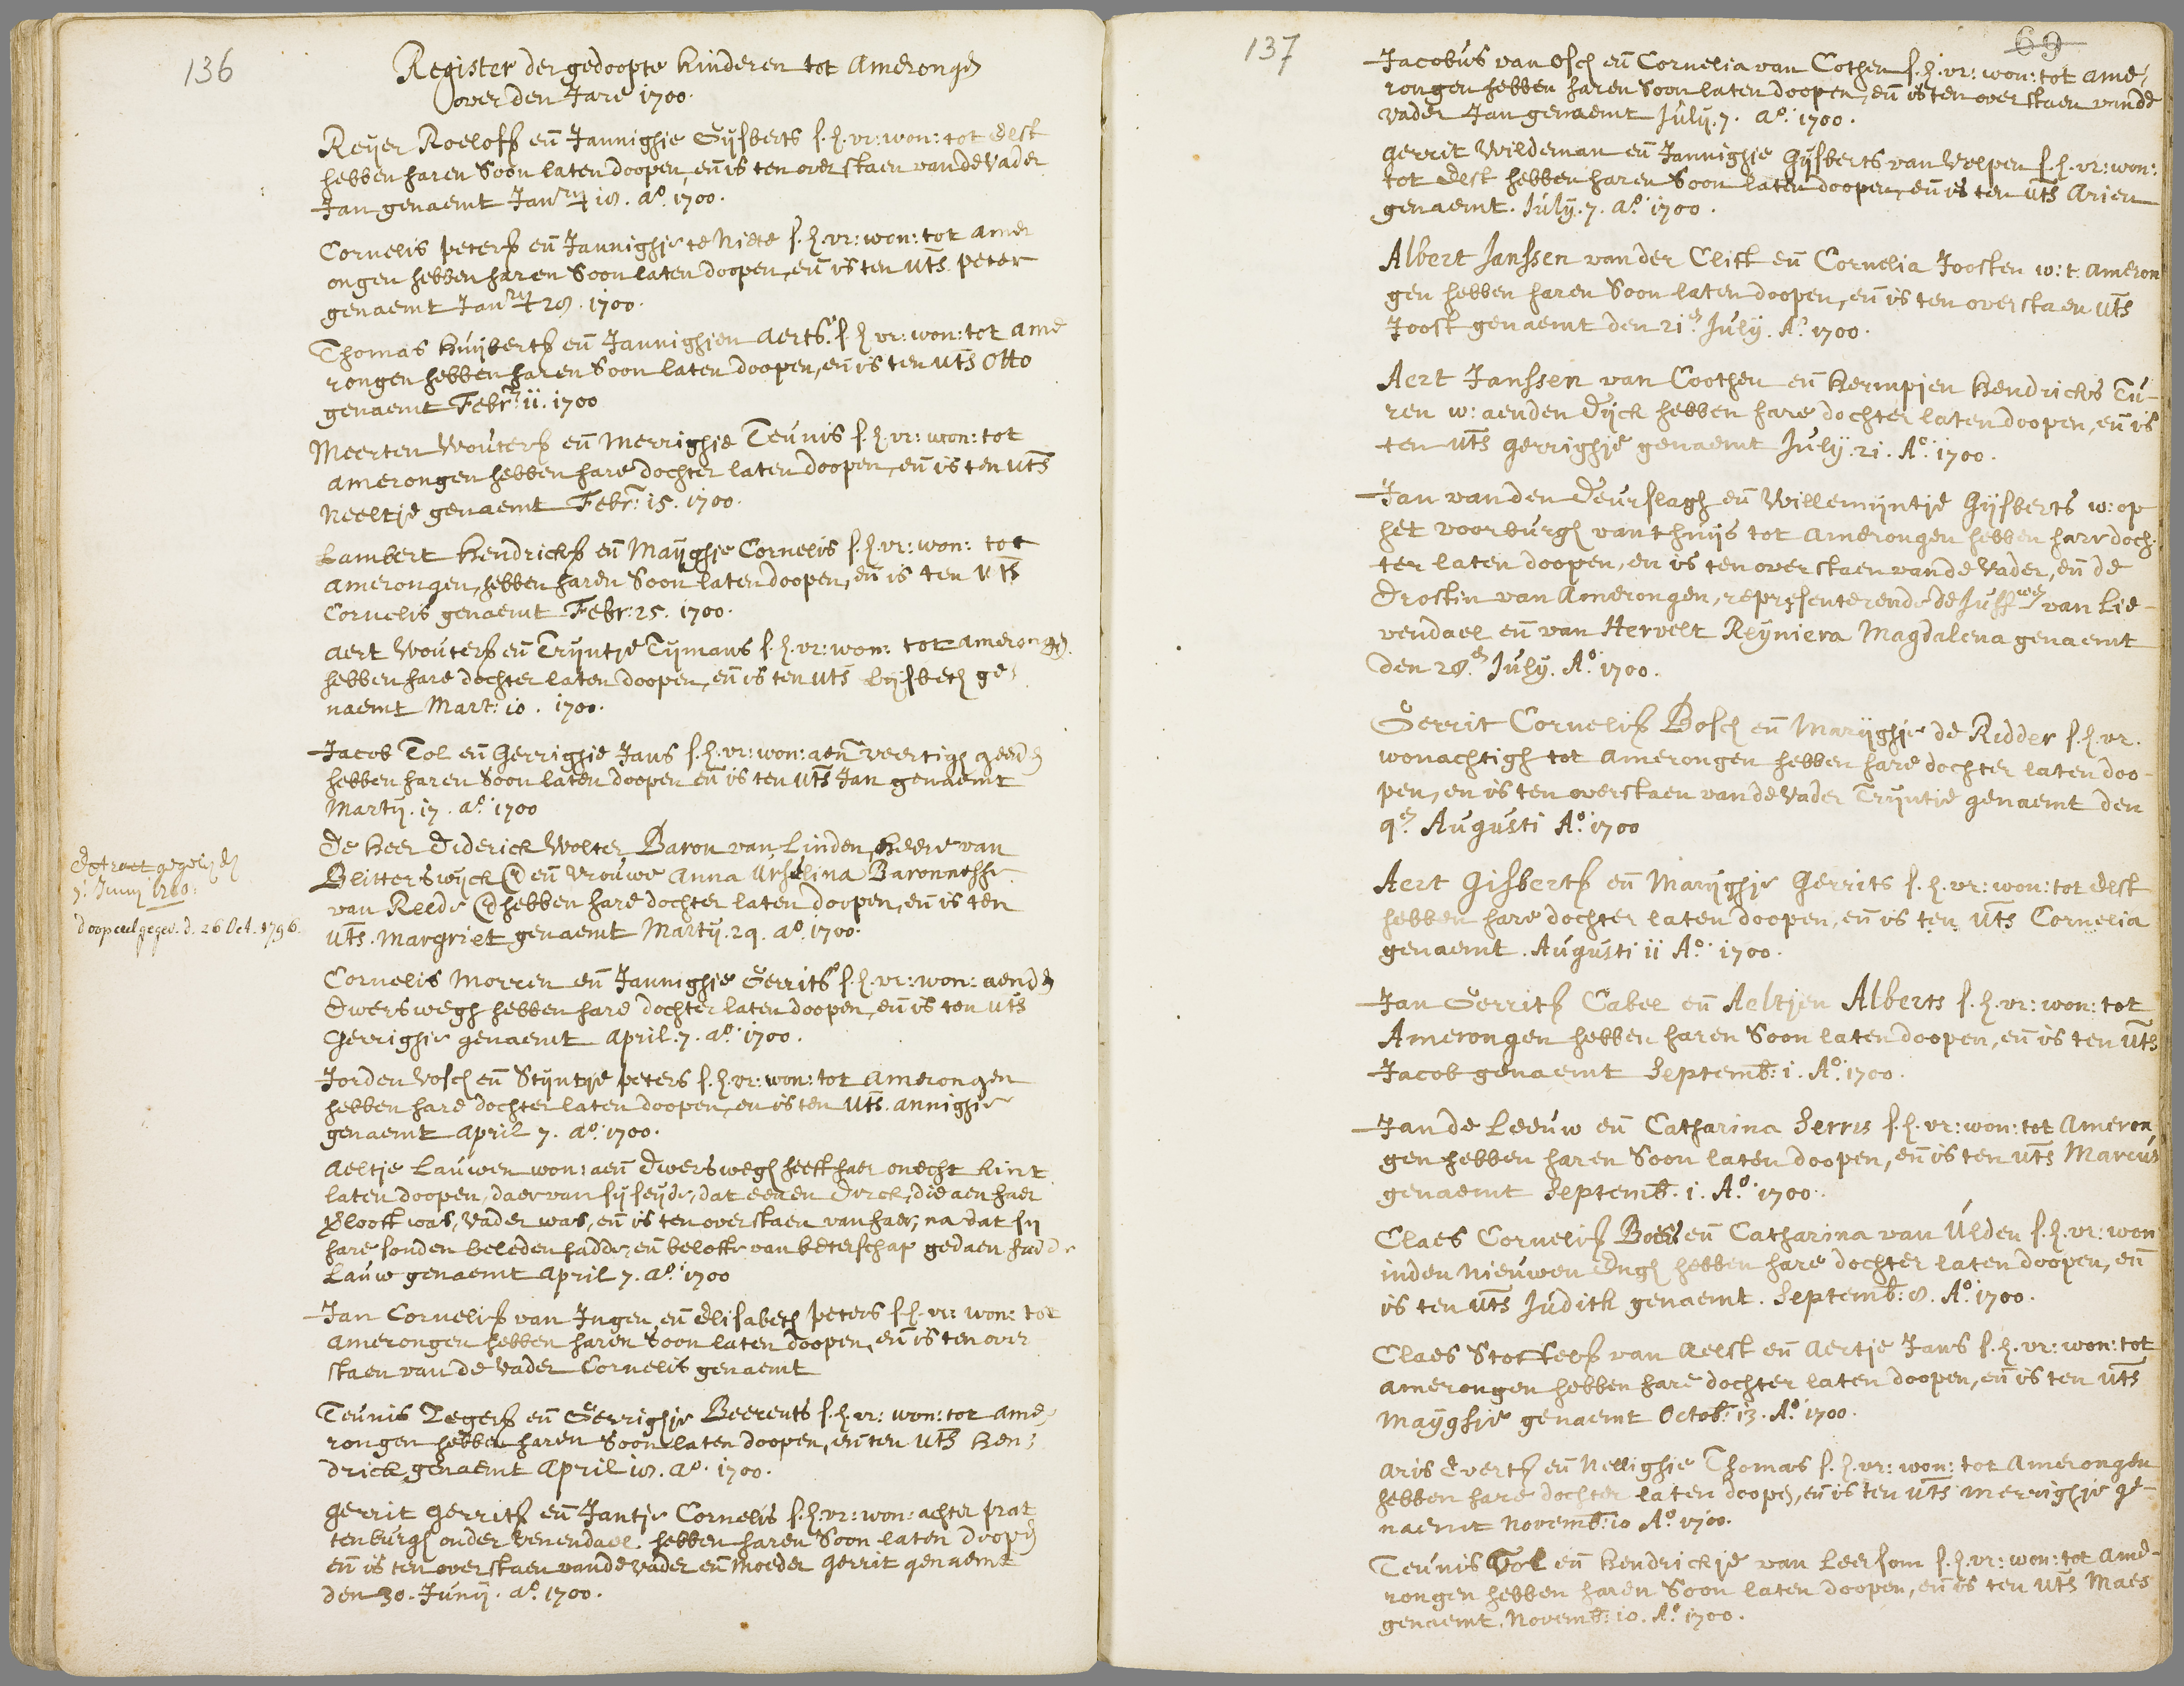 136
Register der gedoopte kinderen tot Amerongen
over den Jare 1700.
Reyer Roeloffs en Jannighie Gijsberts s.h.vr: won: tot Elst
hebben haren Soon laten doopen, en is ten overstaen van de Vader
Jan genaemt Janry 18. Ao. 1700.
Cornelis peters en Jannighie te Niete s.h.vr: won: tot Amer
ongen hebben haren Soon laten doopen, en is ten uts peter
genaemt Janry 28. 1700.
Thomas Huijberts en Jannighien Aerts. s.h.vr: won: tot Ame
rongen hebben haren Soon laten doopen, en is ten uts Otto
genaemt Febr: 11. 1700
Meerten Wouters en Merrighie Teunis s.h.vr: won: tot
Amerongen hebben hare dochter laten doopen, en is ten uts
Neeltje genaemt Febr: 15. 1700.
Lambert Hendricks en Mayghie Cornelis s.h.vr: won: tot
Amerongen, hebben haren Soon laten doopen, en is ten uts
Cornelis genaemt Febr: 25. 1700.
Aert Wouters en Trijntje Tijmans s.h.vr: won: tot Amerongen
hebben hare dochter laten doopen, en is ten uts Lijsbeth ge-
naemt Mart: 10. 1700.
Jacob Tol en Gerrighie Jans s.h.vr: won: aen veertigh geerden
hebben haren Soon laten doopen en is ten uts Jan genaemt
Martij. 17. Ao. 1700
De Heer Diderick Wolter Baron van Linden, Heere van
Blitterswijck @ en Vrouwe Anna Urselina Baronnesse
van Reede @ hebben hare dochter laten doopen, en is ten
uts. Margriet genaemt Martij. 29. Ao. 1700.
Extract gegeven den
7. Junij 1760:
doopceel gegev. d. 26 Oct. 1796.
Cornelis Morren en Jannighie Gerrits s.h.vr: won: aenden
Dwerswegh hebben hare dochter laten doopen, en is ten uts
Gerrighie genaemt April. 7. Ao. 1700.
Jorden Vosch en Stijntje peters s.h.vr: won: tot Amerongen
hebben hare dochter laten doopen, en is ten uts. Annighie
genaemt April 7. Ao. 1700.
Aeltje Lauwen won: aen Dwerswegh heeft haer onecht kint
laten doopen, daer van sij seyde, dat eenen Dirck, die aen haer
verlooft was, Vader was, en is ten overstaen van haer, na dat sij
hare sonden beleden hadde, en belofte van beterschap gedaen hadde
Lauw genaemt April 7. Ao. 1700
Jan Cornelis van Ingen en Elisabeth peters s.h.vr: won: tot
Amerongen hebben haren Soon laten doopen, en is ten over
staen van de Vader Cornelis genaemt
Teunis Zegers en Gerrighie Beerents s.h.vr: won: tot Ame-
rongen hebben haren Soon laten doopen, en ten uts Hen-
drick genaemt April 18. Ao. 1700.
Gerrit Gerrits en Jantje Cornelis s.h.vr: won: achter prat
tenburgh onder Venendael hebben haren Soon laten doopen
en is ten overstaen vande Vader en Moeder Gerrit genaemt
den 30. Junij. Ao. 1700.
137
69
Jacobus van Osch en Cornelia van Cothen s.h.vr: won: tot Ame-
rongen hebben haren Soon laten doopen, en is ten overstaen vande
Vader Jan genaemt July. 7. Ao. 1700.
Gerrit Wildeman en Jannighie Gijsberts van Velpen s.h.vr: won:
tot Elst hebben haren Soon laten doopen, en is ten uts Arien
genaemt. July. 7. Ao. 1700.
Albert Janssen vander Clift en Cornelia Joosten w: t. Ameron
gen hebben haren Soon laten doopen, en is ten overstaen uts
Joost genaemt den 21en July. Ao. 1700.
Aert Janssen van Coothen en Hermpjen Hendricks Tu-
ren w: aenden Dijck hebben hare dochter laten doopen, en is
ten uts Gerrighie genaemt July. 21. Ao. 1700.
Jan vanden Deurslagh en Willemijntje Gijsberts w: op
het voorburgh van thuijs tot Amerongen hebben hare doch-
ter laten doopen, en is ten overstaen vande Vader, en de
Drostin van Amerongen, representerende de Juffwen van Lie-
vendael en van Hervelt Reyniera Magdalena genaemt
den 28en July. Ao. 1700.
Gerrit Cornelis Bosch en Marijghie de Ridder s.h.vr.
wonachtigh tot Amerongen hebben hare dochter laten doo-
pen, en is ten overstaen vande Vader Trijntie genaemt den
9en Augusti Ao. 1700
Aert Gisberts en Marijghie Gerrits s.h.vr: won: tot Elst
hebben hare dochter laten doopen, en is ten uts Cornelia
genaemt. Augusti 11 Ao. 1700.
Jan Gerrits Cabel en Aeltjen Alberts s.h.vr: won: tot
Amerongen hebben haren Soon laten doopen, en is ten uts
Jacob genaemt Septemb: 1. Ao. 1700.
Jan de Leeuw en Catharina Serris s.h.vr: won: tot Ameron
gen hebben haren Soon laten doopen, en is ten uts Marcus
genaemt Septemb. 1. Ao. 1700.
Claes Cornelis Boers en Catharina van Ulden s.h.vr: won
inden Nieuwen Engh hebben hare dochter laten doopen, en
is ten uts Judith genaemt. Septemb: 8. Ao. 1700.
Claes Stoffels van Aelst en Aertje Jans s.h.vr: won: tot
Amerongen hebben hare dochter laten doopen, en is ten uts
Mayghie genaemt Octob: 13. Ao. 1700.
Aris Everts en Nellighie Thomas s.h.vr: won: tot Amerongen
hebben hare dochter laten doopen, en is ten uts Merrighie ge-
naemt Novemb: 10 Ao. 1700.
Teunis Tol en Hendrickje van Leersom s.h.vr: won: tot Ame-
rongen hebben haren Soon laten doopen, en is ten uts Maes
genaemt. Novemb: 10. Ao. 1700.